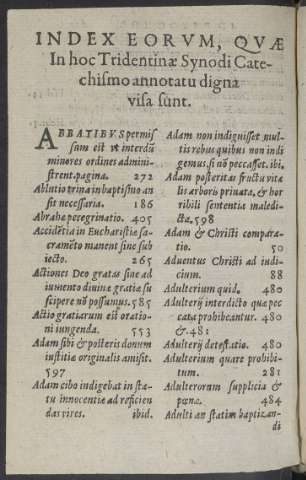 INDEX EORVM, QVÆ
In hoc Tridentinæ Synodi Cate-
chismo annotatu digna
visa sunt.
ABBATIBVS permis
sum est vt interdũ
minores ordines admini-
strent.pagina. 272
Ablutio trina in baptismo an
sit necessaria. 186
Abrahæ peregrinatio. 405
Accidẽtia in Eucharistiæ sa-
cramẽto manent sine sub
iecto. 265
Actiones Deo gratas sine ad
iumento diuinæ gratiæ su
scipere nõ possumus. 585
Actio gratiarum est oratio-
ni iungenda. 553
Adam sibi & posteris donum
iustitiæ originalis amisit.
597
Adam cibo indigebat in sta-
tu innocentiæ ad reficien
das vires. ibid.
Adam non indiguisset mul-
tis rebus quibus non indi
gemus, si nõ peccasset. ibi.
Adam posteritas fructu vitæ
lis arboris priuata, & hor
ribili sententia maledi-
cta. 598
Adam & Christi compara-
tio. 50
Aduentus Christi ad iudi-
cium. 88
Adulterium quid. 480
Adulterij interdicto quæ pec
cata prohibeantur. 480
& 481
Adulterij detestatio. 480
Adulterium quare prohibi-
tum. 281
Adulterorum supplicia &
pœnæ. 484
Adulti an statim baptizan-
di